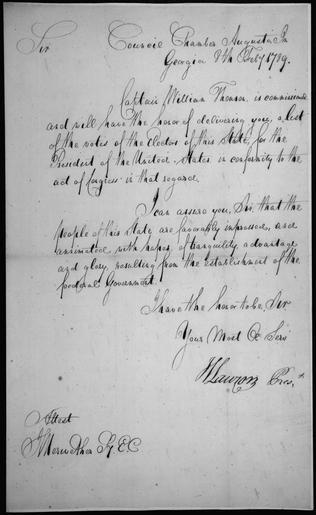 Sir
Council Chamber Augusta In
Georgia 8th Feby 1789.
Captain William Thomson is commissioned
and will have the honor of delivering you, a list
of the votes of the Electors of this State, for the
President of the United States in conformity to the
act of Congress in that regard.
I can assure you, Sir that the
people of this State are favorably impressed, and
animated with hopes, of tranquility advantage
and glory, resulting from the establishment of the
foederal Government.
I have the honor to be, Sir
Your Most O Serv
Prest
Attest
J Meriwether Sy. E.C